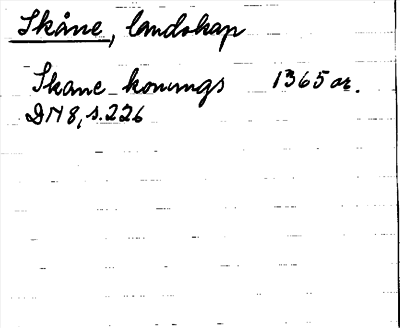 Skåne, landskap
Skane konungs 1365 or.
DN 8, s. 226